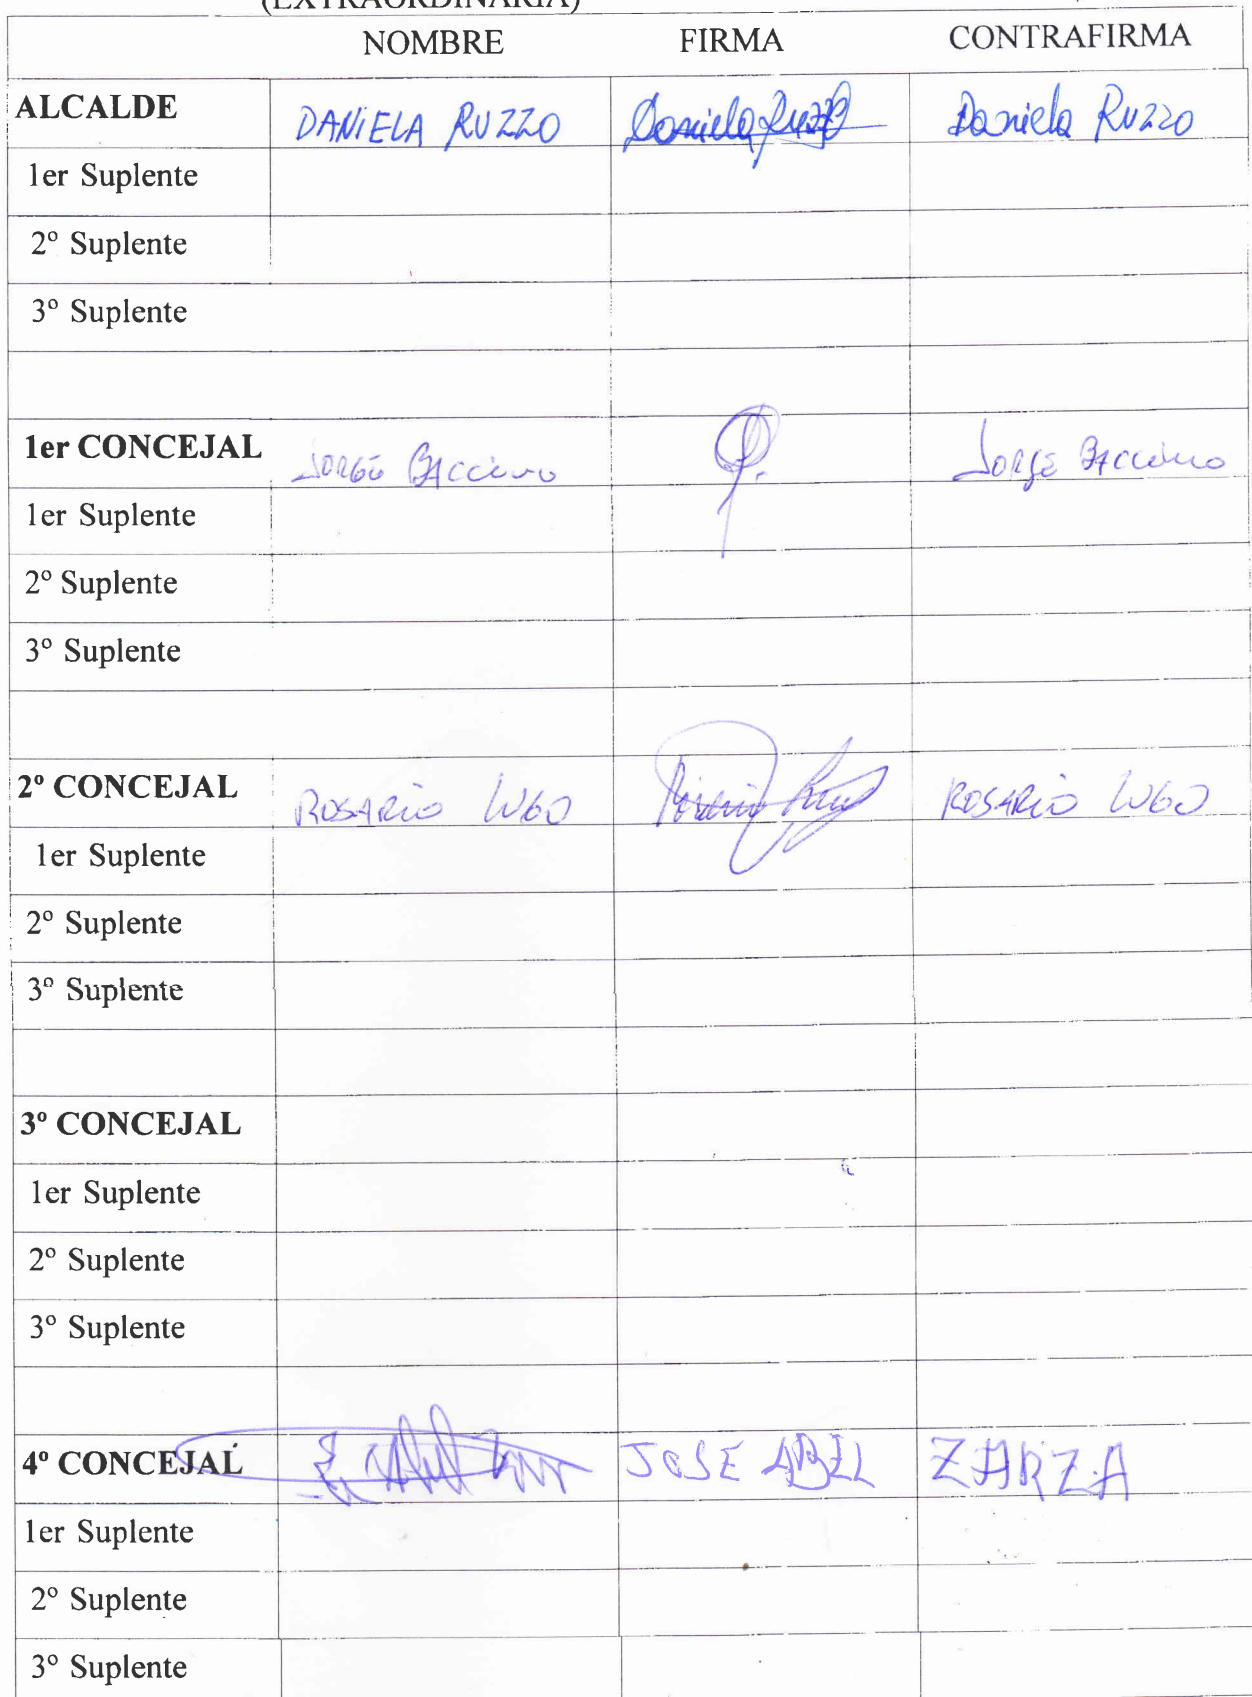 (EXTRAORDINARIA)
NOMBRE FIRMA CONTRAFIRMA
ALCALDE DANIELA RUZZO Daniela Ruzzo Daniela Ruzzo
1er Suplente
2º Suplente
3º Suplente
1er CONCEJAL JORGE BACCINO JORGE BACCINO
1er Suplente
2º Suplente
3º Suplente
2º CONCEJAL ROSARIO LUGO ROSARIO LUGO
1er Suplente
2º Suplente
3º Suplente
3º CONCEJAL
1er Suplente
2º Suplente
3º Suplente
4º CONCEJAL JOSE ABEL ZARZA
1er Suplente
2º Suplente
3º Suplente